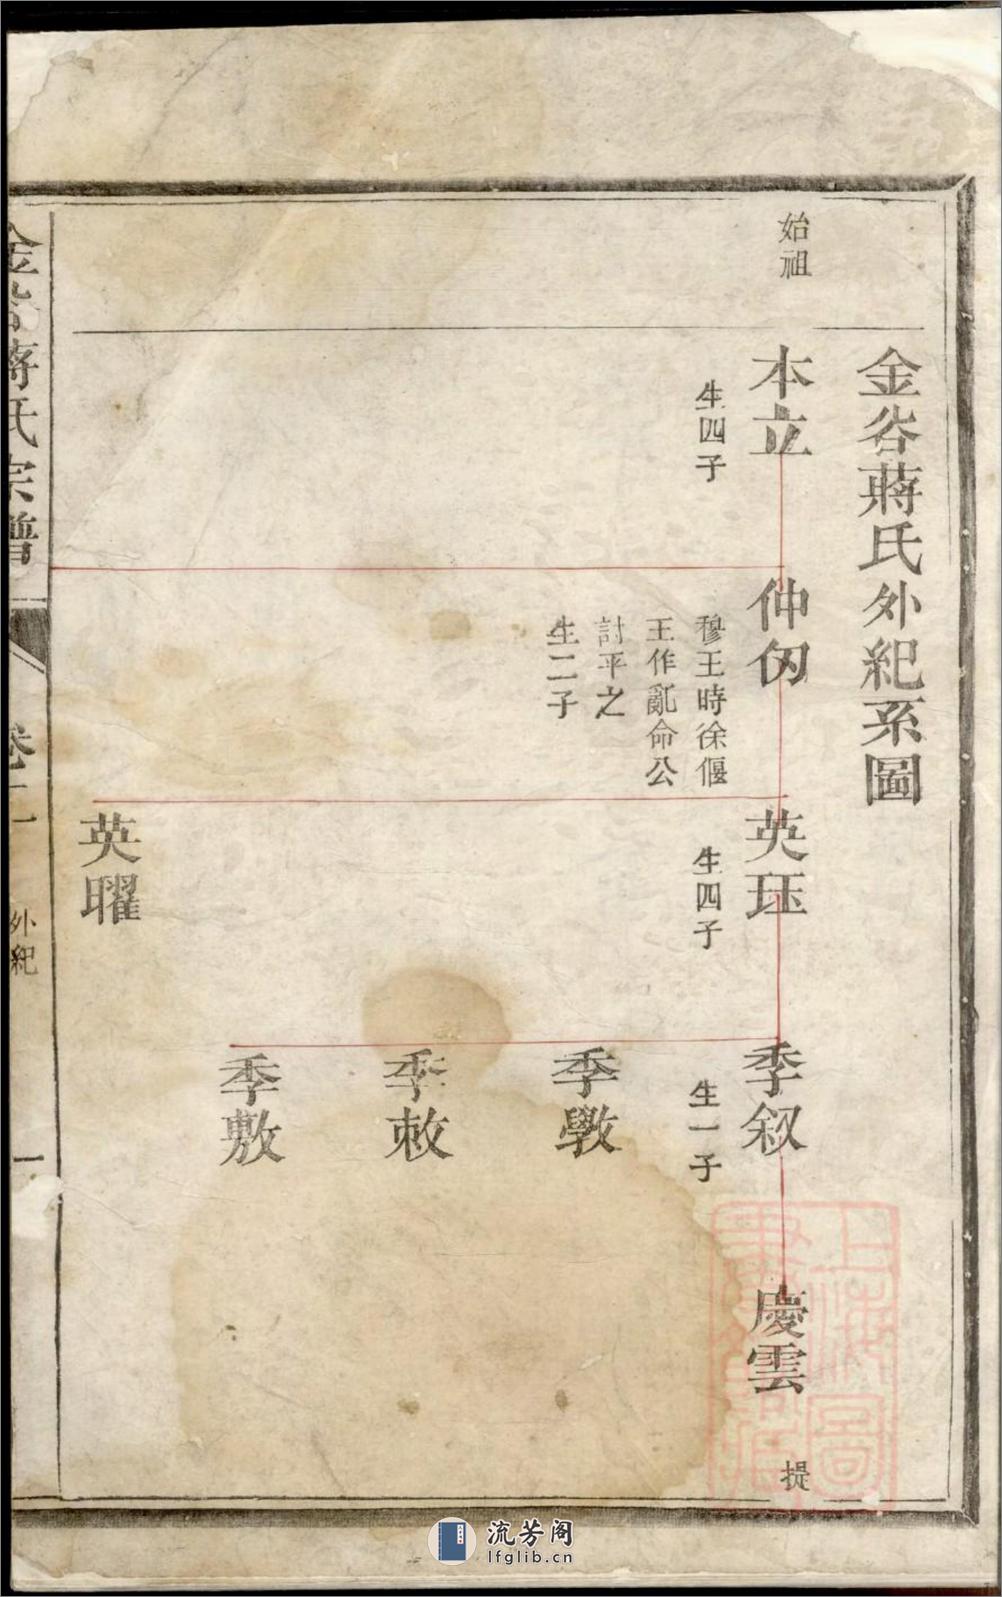 金谷蔣氏外紀系圖
始祖
本立
生四子
仲芀
穆王時徐偃
王作亂命公
討平之
生二子
英珏
生四子
英曜
季叙
生一子
季敩
季敕
季敷
慶雲
提
金谷蔣氏宗譜
卷二
外紀
一
流芳阁
lfglib.cn